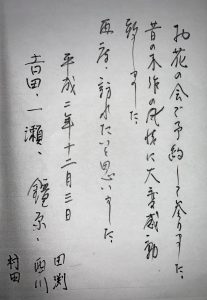 お花の会で予約して参りました。
昔の木作の民技に大変感動
致しました。
再度、訪れたいと思いました。
平成二年十二月三日
吉田、一瀬、鐘原、西川
田渕
村田